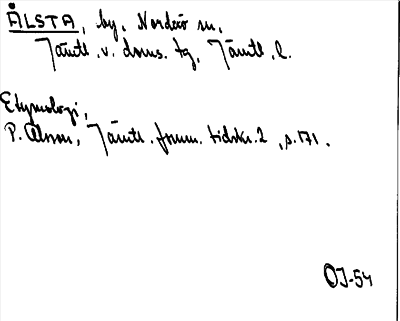 ÅLSTA, by, Norderö sn,
Jämtl. v. doms. tg, Jämtl. l.
Etymologi,
P. Olsson, Jämtl. fornm. tidskr. 2, s. 171.
OJ-54